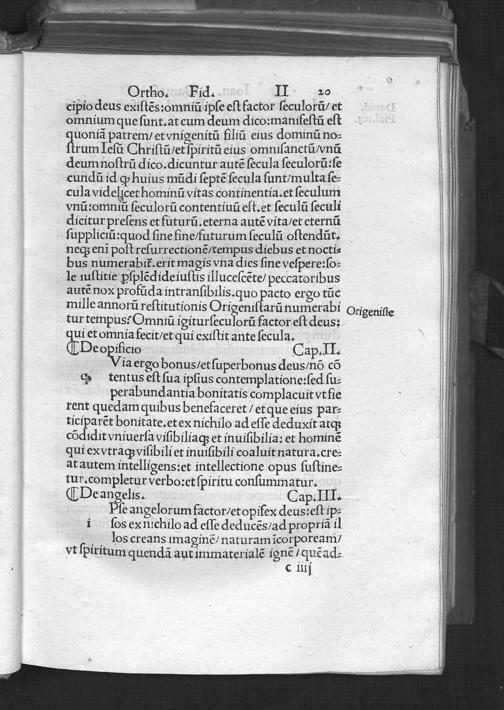 Ortho. Fid. II 20
cipio deus existẽs: omniũ ipse est factor seculorũ/ et
omnium que sunt. at cum deum dico: manifestũ est
quoniã patrem/ et vnigenitũ filiũ eius dominũ no-
strum Iesũ Christũ/ et spiritũ eius omnisanctũ/ vnũ
deum nostrũ dico. dicuntur autẽ secula seculorũ: se
cundũ id ꝙ huius mũdi septẽ secula sunt/ multa se-
cula videlicet hominũ vitas continentia. et seculum
vnũ: omniũ seculorũ contentiuũ est. et seculũ seculi
dicitur presens et futurũ. eterna autẽ vita/ et eternũ
suppliciũ: quod sine fine/ futurum seculũ ostendũt.
neqꝫ eni post resurrectionẽ/ tempus diebus et nocti-
bus numerabit̃. erit magis vna dies sine vespere: so-
le iustitie psplẽdide iustis illucescẽte/ peccatoribus
autẽ nox profũda intransibilis. quo pacto ergo tũc
mille annorũ restitutionis Origenistarũ numerabi
tur tempus? Omniũ igitur seculorũ factor est deus:
qui et omnia fecit/ et qui existit ante secula.
Origeniste
⸿ De opificio Cap. II.
Via ergo bonus/ et superbonus deus/ nõ cõ
ꝙ tentus est sua ipsius contemplatione: sed su-
perabundantia bonitatis complacuit vt fie
rent quedam quibus benefaceret/ et que eius par-
ticiparẽt bonitate. et ex nichilo ad esse deduxit atqꝫ
cõdidit vniuersa visibiliaqꝫ et inuisibilia: et hominẽ
qui ex vtraqꝫ visibili et inuisibili coaluit natura. cre-
at autem intelligens: et intellectione opus sustine-
tur. completur verbo: et spiritu consummatur.
⸿ De angelis. Cap. III.
Pse angelorum factor/ et opifex deus: est ip-
i sos ex nichilo ad esse deducẽs/ ad propriã il
los creans imaginẽ/ naturam ĩcorpoream/
vt spiritum quendã aut immaterialẽ ignẽ/ quẽad-
c iiij